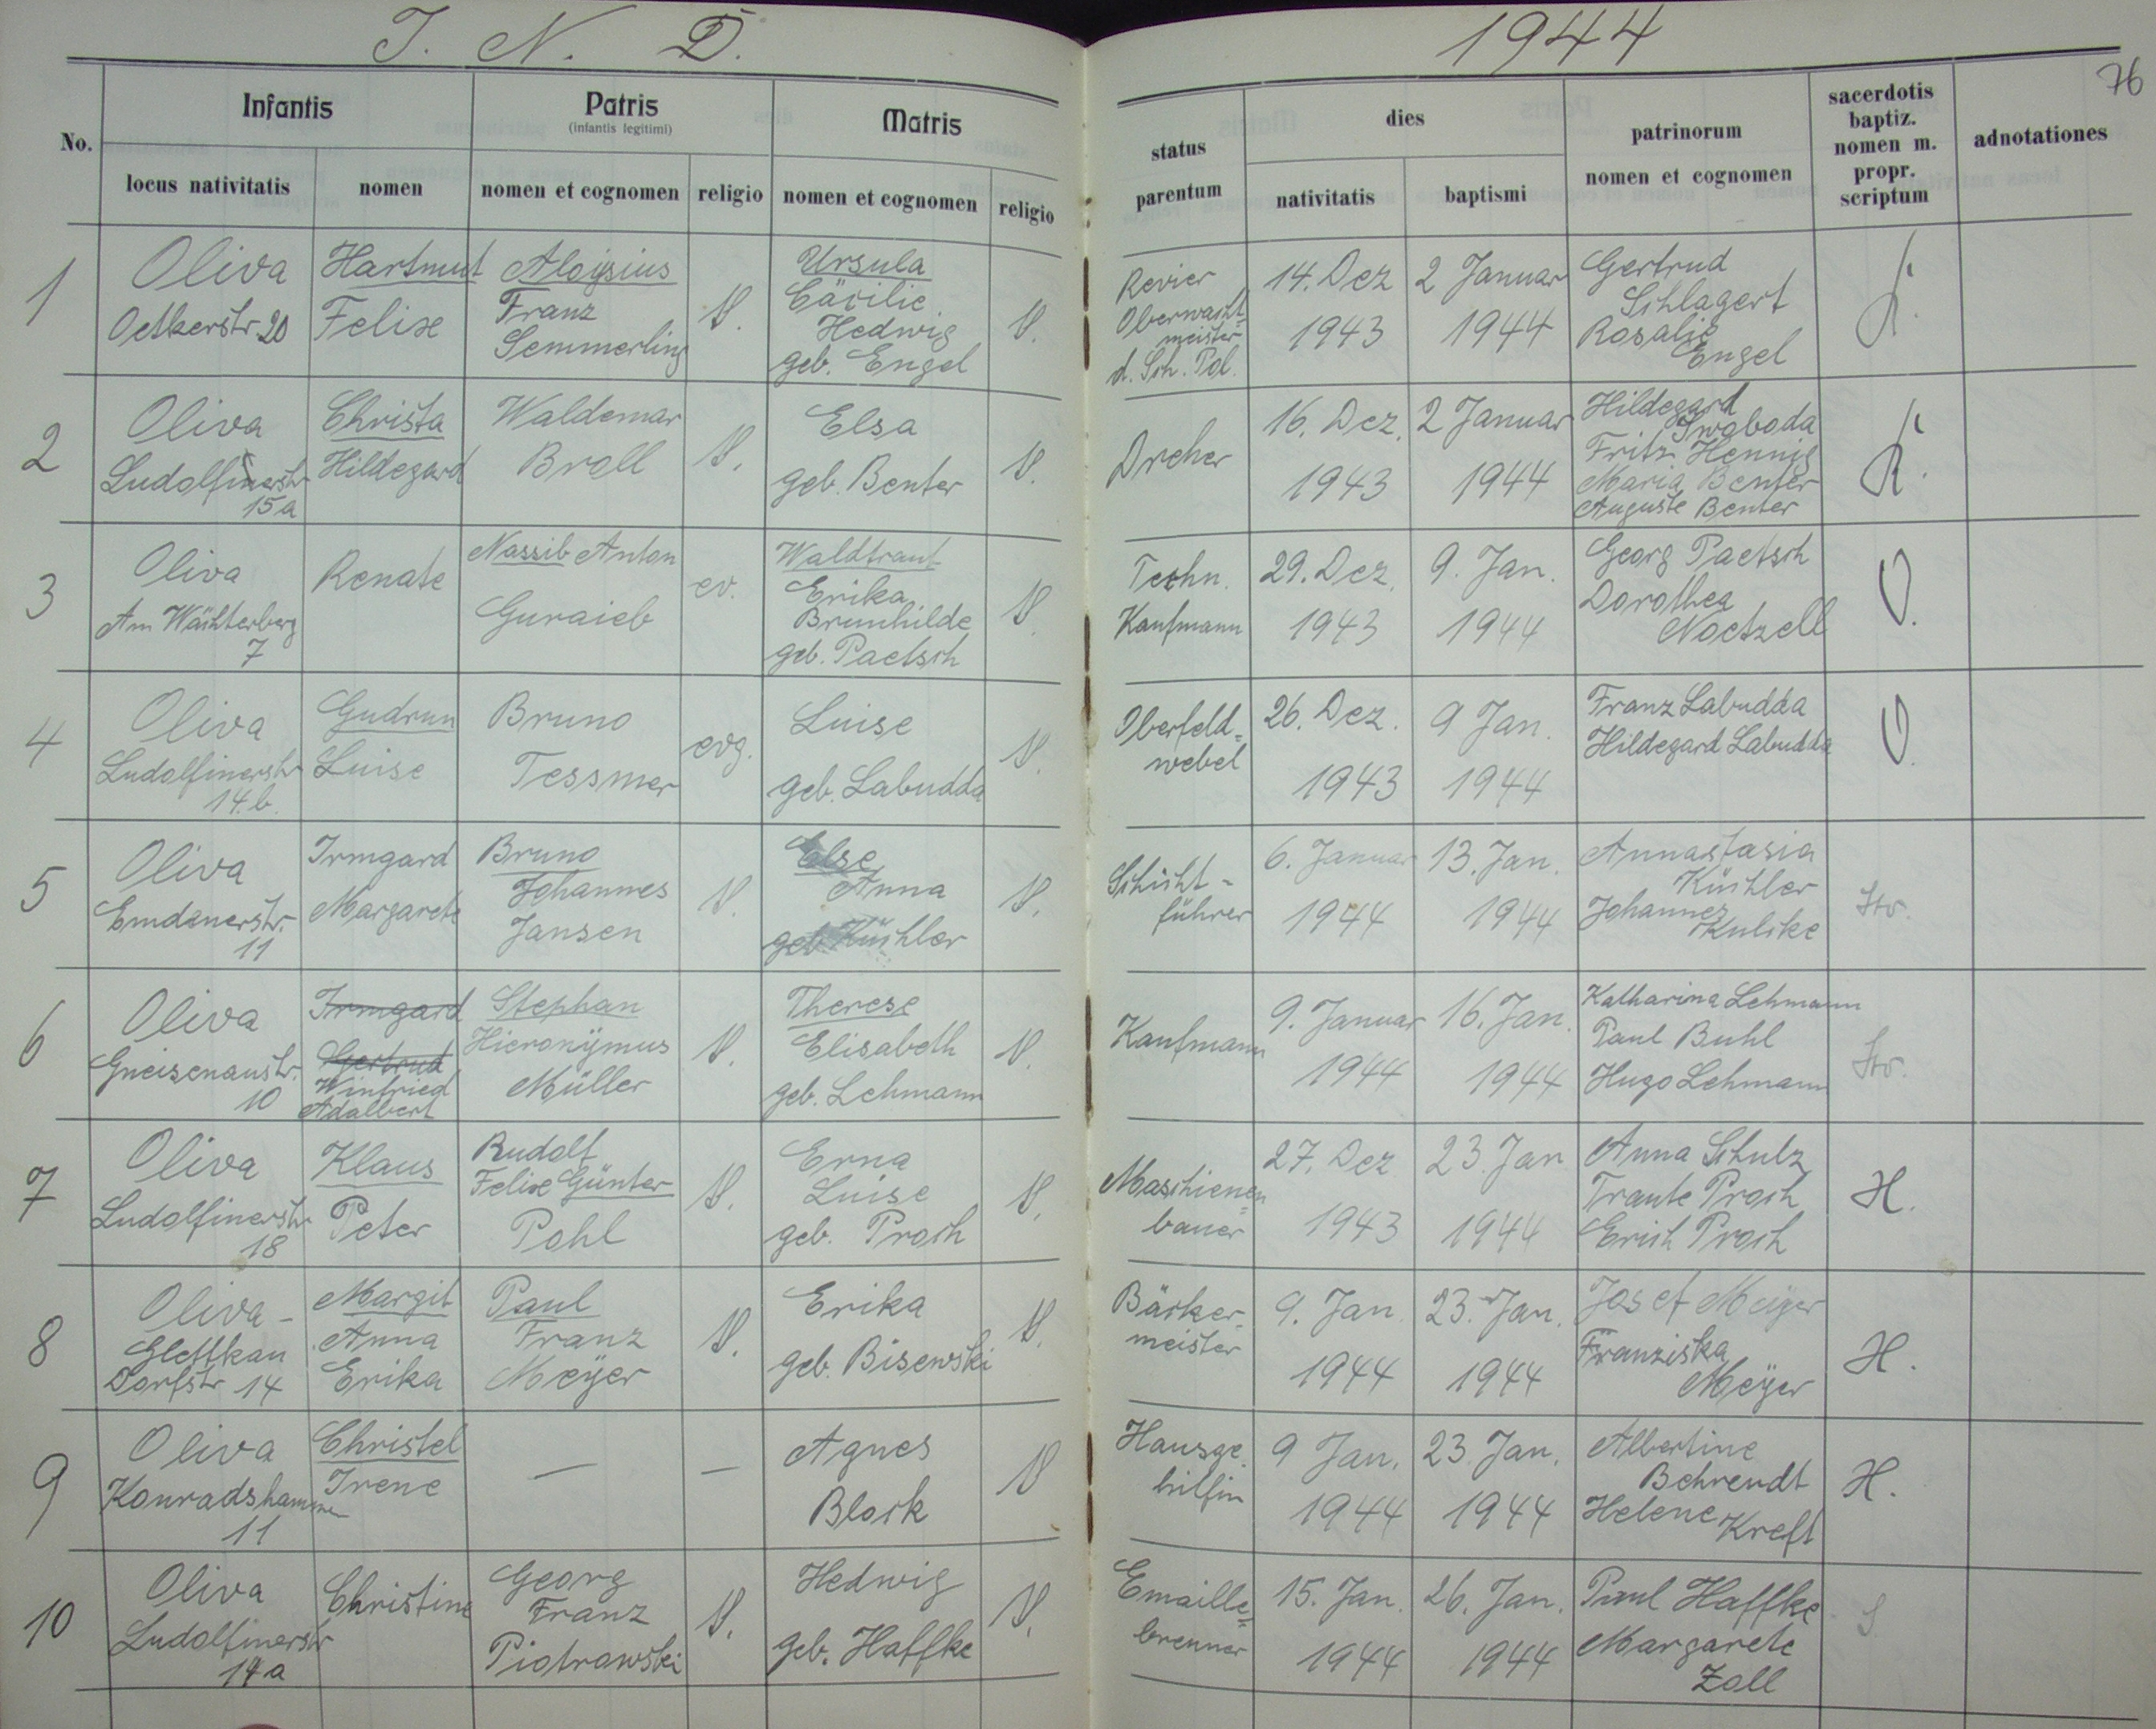 J. N. D. 1944
76
No.
Infantis
Patris
(infantis legitimi)
Matris
status
parentum
dies
patrinorum
nomen et cognomen
sacerdotis
baptiz.
nomen m.
propr.
scriptum
adnotationes
locus nativitatis
nomen
nomen et cognomen
religio
nomen et cognomen
religio
nativitatis
baptismi
1
Oliva
Oetkerstr 20
Hartmut
Felix
Aloysius
Franz
Semmerling
Ursula
Cäcilie
Hedwig
geb. Engel
Revier
Oberwacht
meister
d. Sch. Pol.
14. Dez
1943
2 Januar
1944
Gertrud
Schlagert
Rosalie
Engel
2
Oliva
Ludolfinerstr
15a
Christa
Hildegard
Waldemar
Broll
Elsa
geb. Benter
Dreher
16. Dez.
1943
2 Januar
1944
Hildegard
Swoboda
Fritz Hennig
Maria Benter
Auguste Benter
3
Oliva
Am Wächterberg
7
Renate
Nassib Anton
Guraieb
ev.
Waldtraut
Erika
Brunhilde
geb. Paetsch
Techn.
Kaufmann
29. Dez.
1943
9. Jan.
1944
Georg Paetsch
Dorothea
Noetzell
4
Oliva
Ludolfinerstr
14.b.
Gudrun
Luise
Bruno
Tessmer
evg.
Luise
geb. Labudda
Oberfeld=
webel
26. Dez.
1943
9 Jan.
1944
Franz Labudda
Hildegard Labudda
5
Oliva
Emdenerstr.
11
Irmgard
Margarete
Bruno
Johannes
Jansen
Else
Anna
geb Küchler
Schicht-
führer
6. Januar
1944
13. Jan.
1944
Annastasia
Küchler
Johannes
Kulske
Str.
6
Oliva
Gneisenaustr.
10
Irmgard
Gertrud
Winfried
Adalbert
Stephan
Hieronÿmus
Müller
Therese
Elisabeth
geb. Lehmann
Kaufmann
9. Januar
1944
16. Jan.
1944
Katharina Lehmann
Paul Buhl
Hugo Lehmann
Str.
7
Oliva
Ludolfinerstr
18
Klaus
Peter
Rudolf
Felix Günter
Pohl
Erna
Luise
geb. Proch
Maschienen=
bauer
27. Dez
1943
23. Jan
1944
Anna Schulz
Traute Proch
Erich Proch
H.
8
Oliva-
Glettkau
Dorfstr 14
Margit
Anna
Erika
Paul
Franz
Meÿer
Erika
geb. Bisewski
Bäcker-
meister
9. Jan.
1944
23. Jan.
1944
Josef Meÿer
Franziska
Meÿer
H.
9
Oliva
Konradshammer
11
Christel
Irene
—
—
Agnes
Block
Hausge
hilfin
9 Jan.
1944
23. Jan.
1944
Albertine
Behrendt
Helene Kreft
H.
10
Oliva
Ludolfinerstr
14a
Christine
Georg
Franz
Piotrowski
Hedwig
geb. Haffke
Emaille=
brenner
15. Jan.
1944
26. Jan.
1944
Paul Haffke
Margarete
Zoll
S